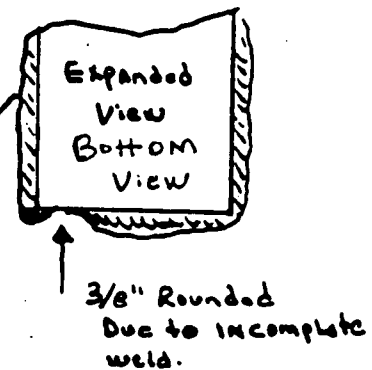 Expanded
View
Bottom
View
3/8" Rounded
Due to incomplete
weld.